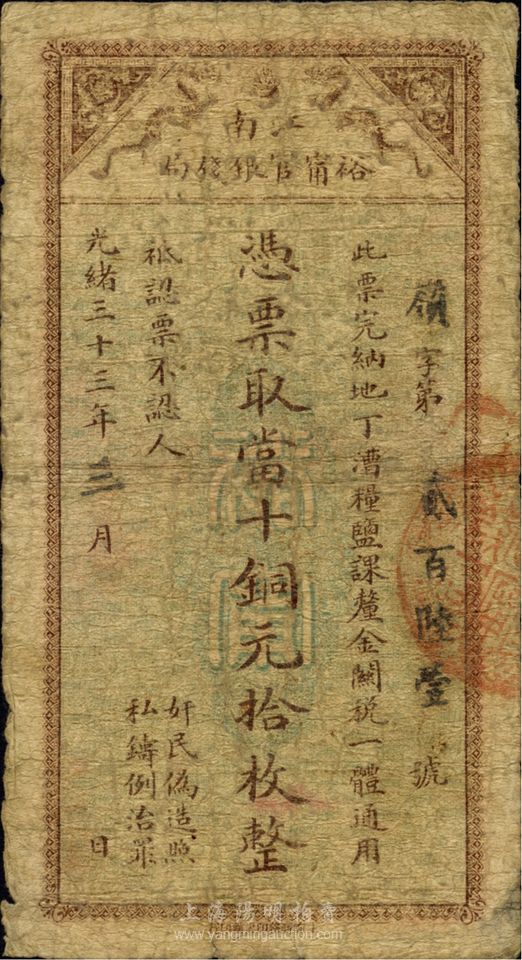 江南
裕甯官銀錢局
領字第貳百陸壹號
此票完納地丁漕糧鹽課釐金關稅一體通用
憑票取當十銅元拾枚整
奸民偽造照
私鑄例治罪
祗認票不認人
光緒三十三年三月日
上海陽明拍賣
www.yangmingauction.com